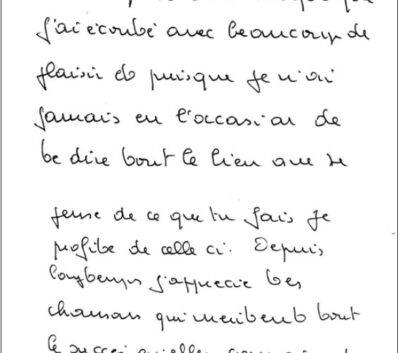 j'ai écouté avec beaucoup de
plaisir et puisque je n'ai
jamais eu l'occasion de
te dire tout le bien que je
pense de ce que tu fais je
profite de celle ci. Depuis
longtemps j'apprecie tes
chansons qui meritent tout
le succes qu'elles